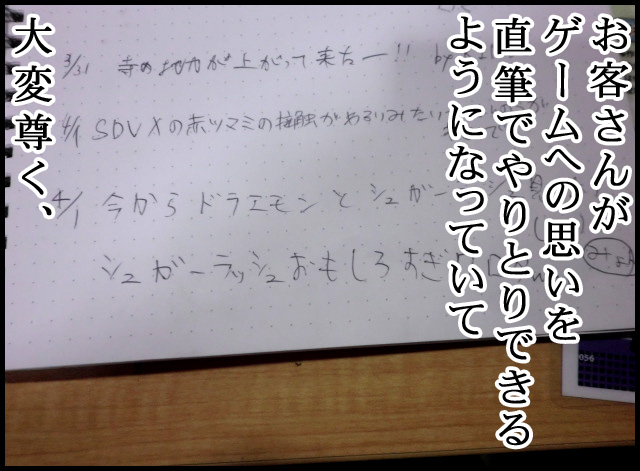 お客さんが
ゲームへの思いを
直筆でやりとりできる
ようになっていて
大変尊く、
3/31 寺の地力が上がって来たー!! by
4/1 SDVXの赤ツマミの接触がわるいみたい
4/1 今からドラエモンとシュガー
シュガーラッシュおもしろすぎ
056